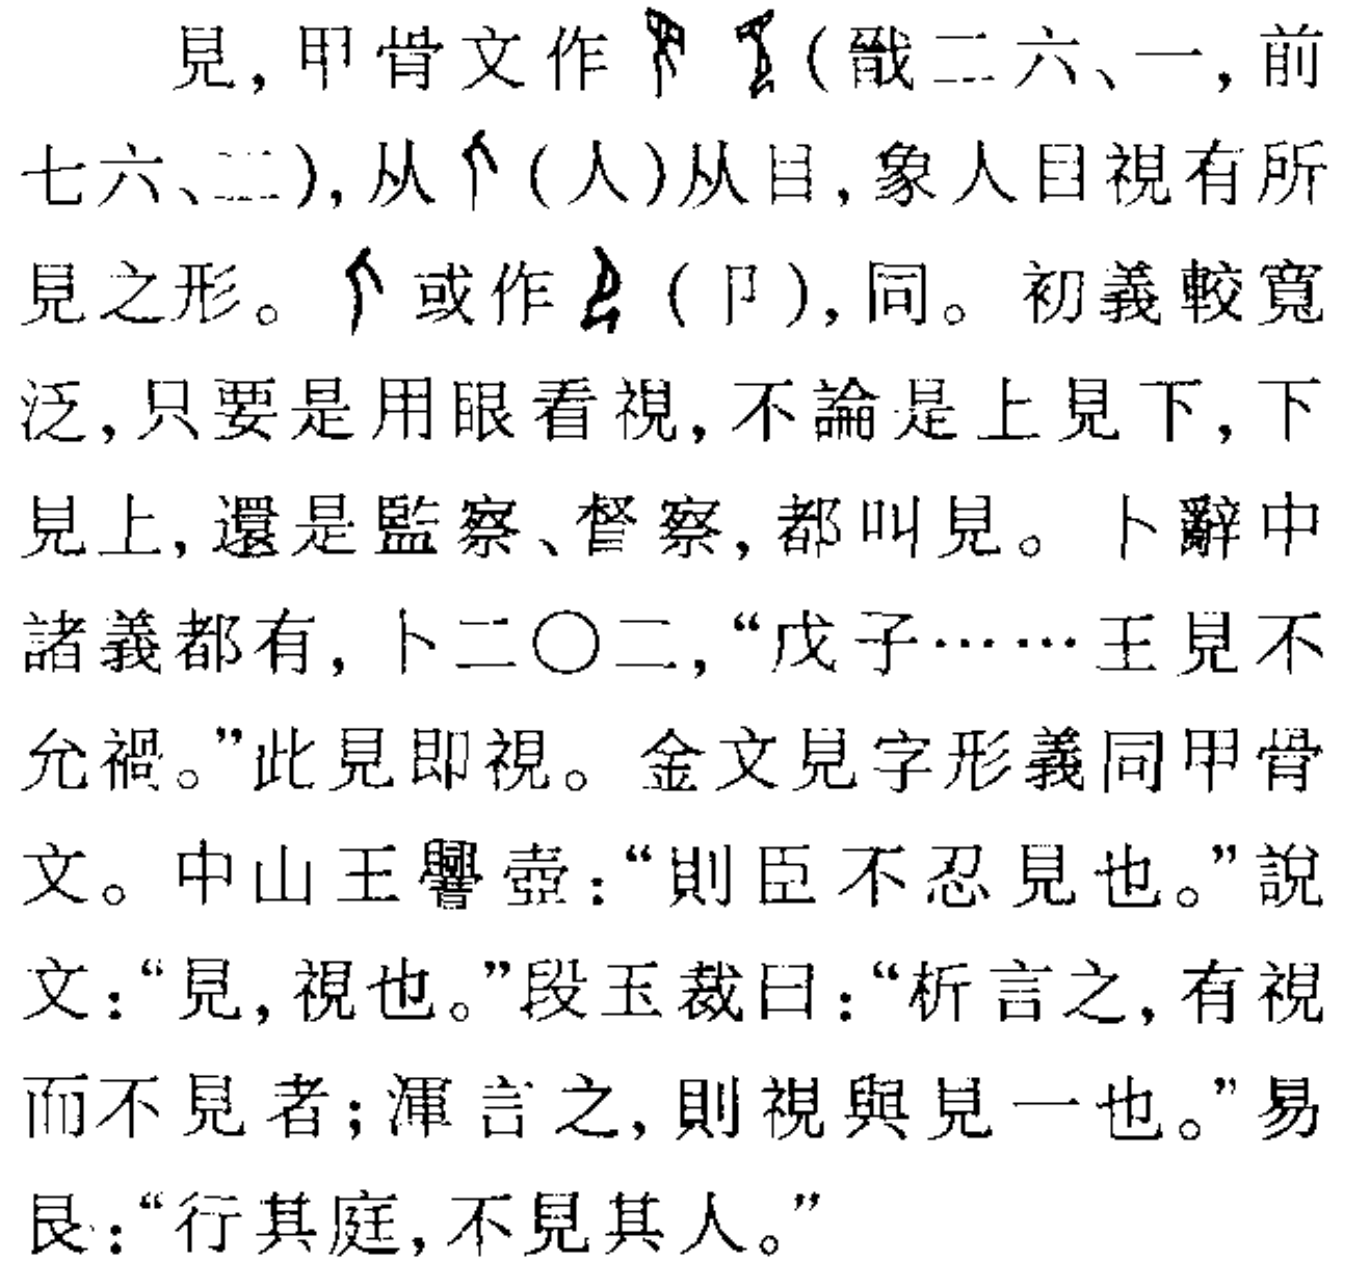 見,甲骨文作 (戩二六、一,前
七六、二),从 (人)从目,象人目視有所
見之形。 或作 (卩),同。初義較寬
泛,只要是用眼看視,不論是上見下,下
見上,還是監察、督察,都叫見。卜辭中
諸義都有,卜二〇二,“戊子……王見不
允禍。”此見即視。金文見字形義同甲骨
文。中山王壺:“則臣不忍見也。”說
文:“見,視也。”段玉裁曰:“析言之,有視
而不見者;渾言之,則視與見一也。”易
艮:“行其庭,不見其人。”